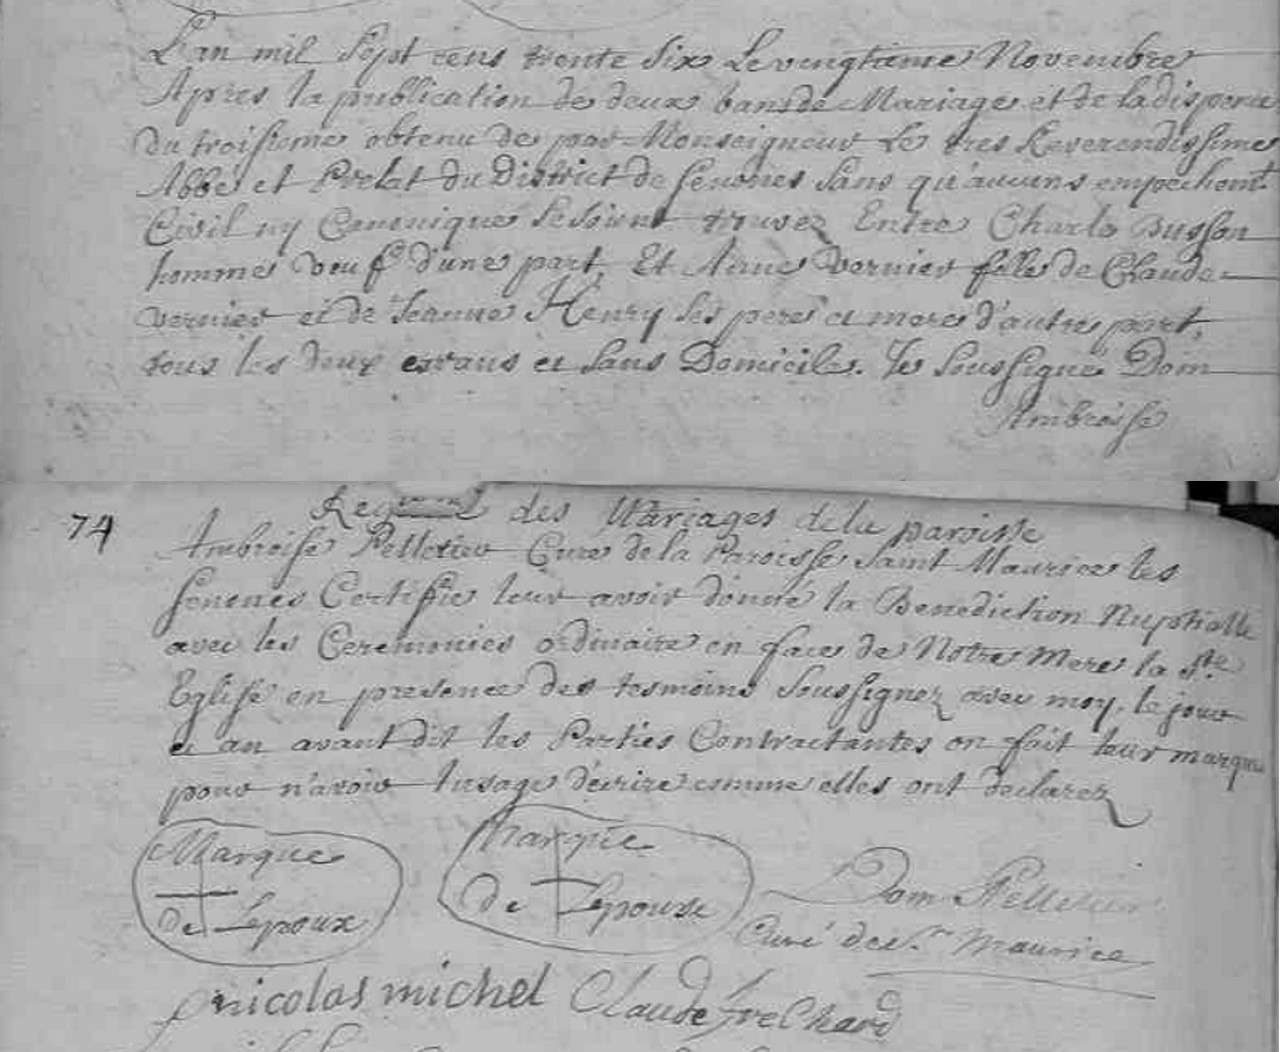 L'an mil sept cens trente six Le vingtieme Novembre
Apres la publication de deux bans de Mariage et de la dispence
du troisieme obtenu de par Monseigneur Le tres Reverendissime
Abbé et Prelat du District de Senones sans qu'aucuns empechemt
Civil ny Canonique se soient trouvez Entre Charle Busson
homme veuf d'une part, Et Anne Vernier fille de Claude
Vernier et de Jeanne Henry ses peres et meres d'autre part,
tous les deux errans et sans Domicile. Je soussigné Dom
Ambroise
74
des Mariages de la paroisse
Ambroise Pelletier Curé de la Paroisse Saint Maurice les
Senones Certifie leur avoir donné la Benediction Nuptialle
avec les Ceremonies ordinaire en face de Notre Mere la Ste
Eglise en presence des tesmoins soussignez avec moy, le jour
et an avant dit les Parties Contractantes on fait leur marque
pour n'avoir lusage décrire comme elles ont declarez
Marque
de Lepoux
Marque
de Lepouse
Dom Pelletier
Curé de St Maurice
nicolas michel
Claude freChard